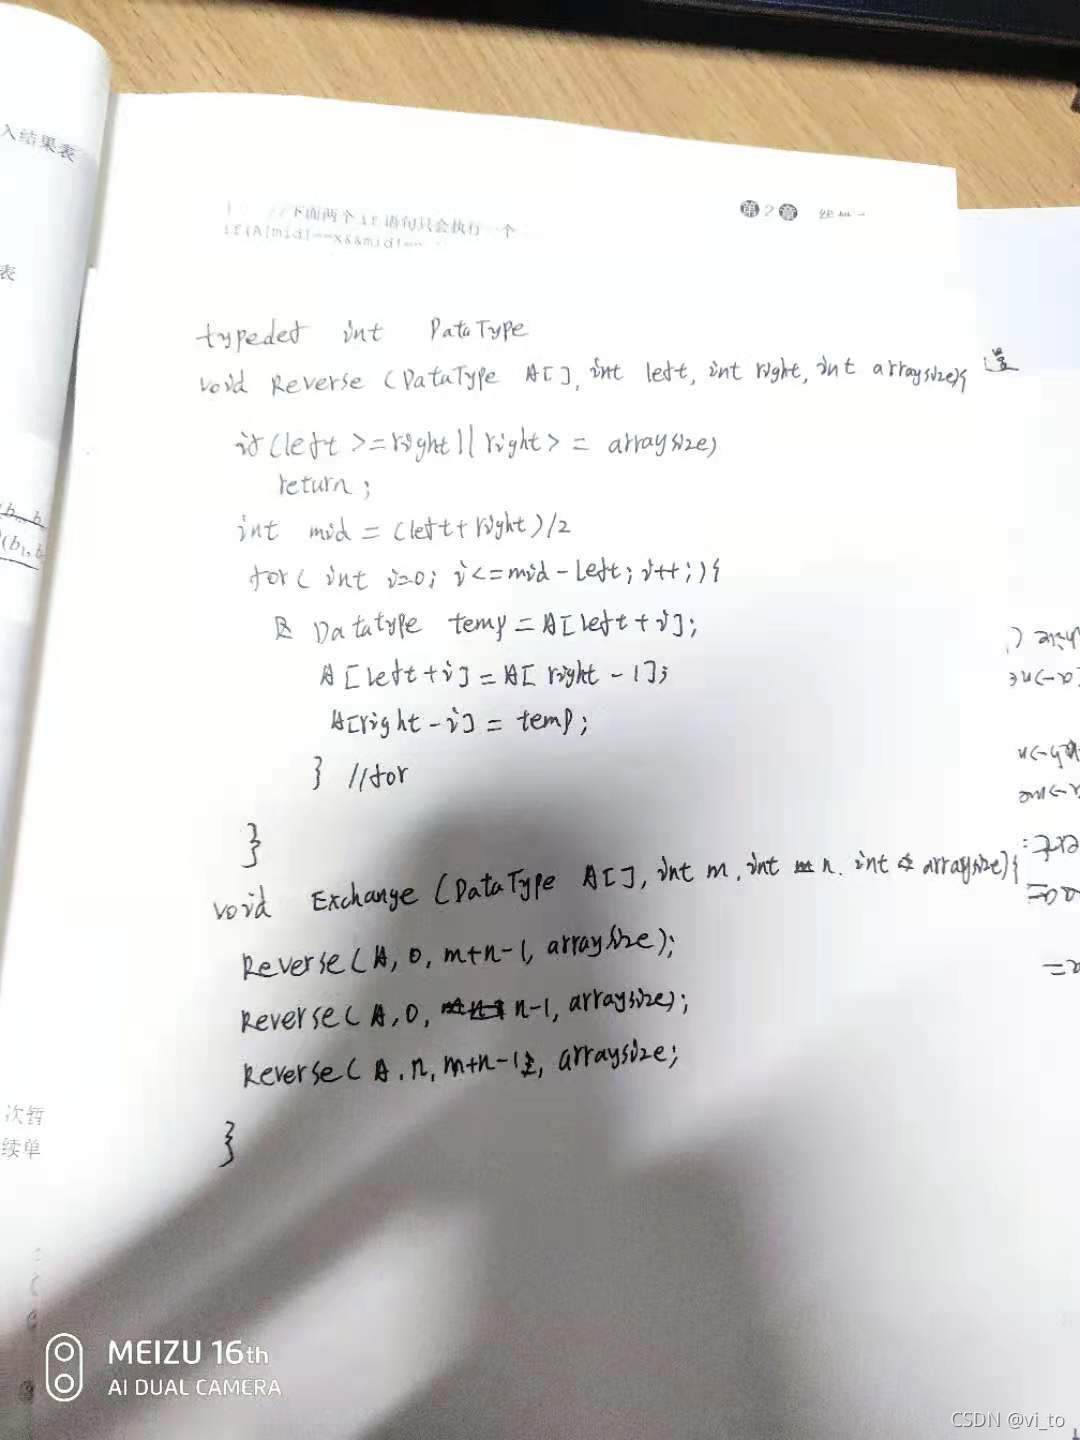 入结果表
表
//下面两个if语句只会执行一个
if(A[mid]==x&&mid!=
第2章
typedef int DataType
void Reverse (DataType A[], int left, int right, int arraysize){
if(left >=right||right> = arraysize)
return ;
int mid = (left+right)/2
for( int i=0; i<=mid-left; i++;){
Datatype temp=A[left+i];
A[left+i]=A[ right -1];
A[right-i] = temp;
} //for
}
void Exchange (DataType A[], int m, int n, int arraysize){
Reverse(A, 0, m+n-1, arraysize);
Reverse(A,0, n-1, arraysize);
Reverse(A,n,m+n-1, arraysize;
}
次暂
续单
MEIZU 16th
AI DUAL CAMERA
CSDN @vi_to